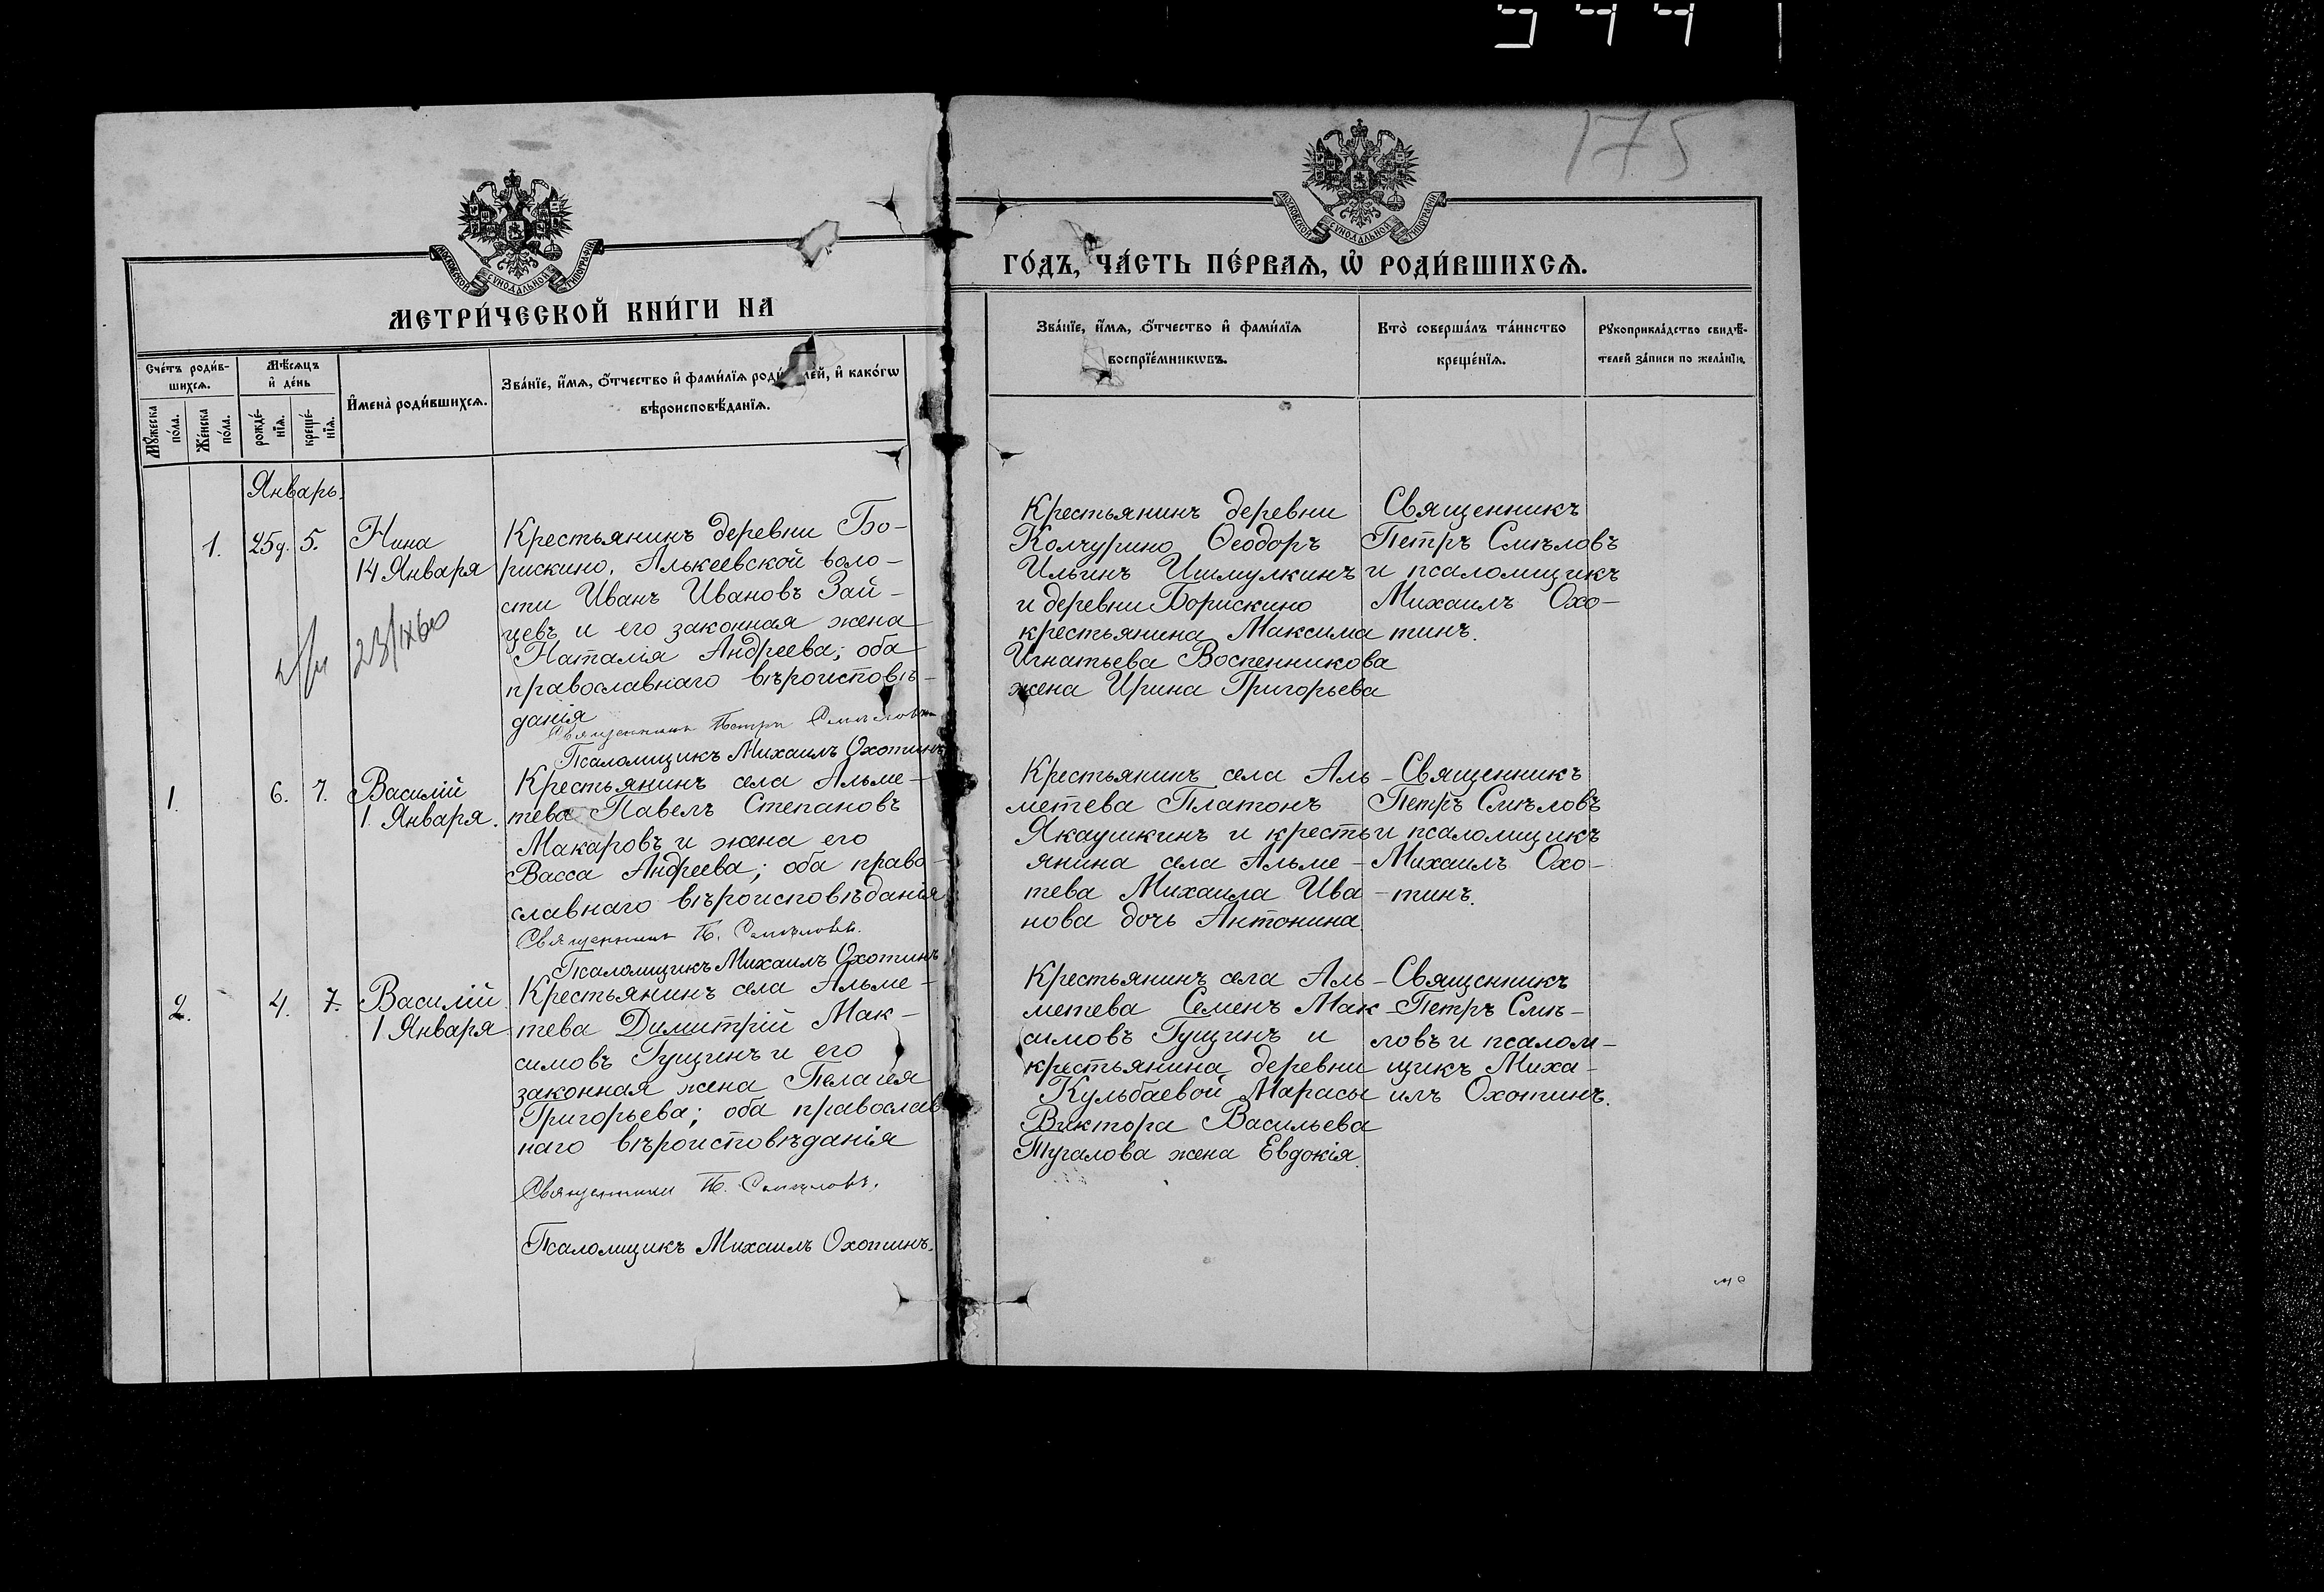 175
МОСКОВСКОЙ СУНОДАЛЬНОЙ ТИПОГРАФІИ
МЕТРИ́ЧЕСКОЙ КНИ́ГИ НА
МОСКОВСКОЙ СУНОДАЛЬНОЙ ТИПОГРАФІИ
ГО́ДЪ, ЧА́СТЬ ПЕ́РВАѦ, Ѡ҆ РОДИ́ВШИХСѦ.
Сче́тъ роди́в-
шихсѧ.
Мꙋ́жеска
по́ла.
Же́нска
по́ла.
Мѣ́сѧцъ
и҆ де́нь
рожде́-
нїѧ.
креще́-
нїѧ.
И҆мена̀ роди́вшихсѧ.
Зва́нїе, и҆́мѧ, ѻ҆́тчество и҆ фами́лїѧ роди лей, и҆ како́гѡ
вѣроисповѣ́данїѧ.
Зва́нїе, и҆́мѧ, ѻ҆́тчество и҆ фами́лїѧ
воспрїе́мникѡвъ.
Кто̀ соверша́лъ та́инство
креще́нїѧ.
Рꙋкоприкла́дство свидѣ́-
телей за́писи по жела́нїю.
Январь.
1.
25д.
5.
Нина
14 Января
23/IX60
Крестьянинъ деревни Бо-
рискино, Алькеевской воло-
сти Иванъ Ивановъ Зай-
цевъ и его законная жена
Наталія Андреева; оба
православнаго вѣроисповѣ-
данія
Священникъ Петръ Смѣловъ
Псаломщикъ Михаилъ Охотинъ
Крестьянинъ деревни
Колчурино Ѳеодоръ
Ильинъ Ишмулкинъ
и деревни Борискино
крестьянина Максима
Игнатьева Воспенникова
жена Ирина Григорьева
Священникъ
Петръ Смѣловъ
и псаломщикъ
Михаилъ Охо-
тинъ.
1.
6.
7.
Василій
1 Января.
Крестьянинъ села Альме-
тева Павелъ Степановъ
Макаровъ и жена его
Васса Андреева; оба право-
славнаго вѣроисповѣданія
Священникъ П. Смѣловъ.
Псаломщикъ Михаилъ Охотинъ
Крестьянинъ села Аль-
метева Платонъ
Якаушкинъ и кресть
янина села Альме-
тева Михаила Ива-
нова дочь Антонина
Священникъ
Петръ Смѣловъ
и псаломщикъ
Михаилъ Охо-
тинъ.
2.
4.
7.
Василій
1 Января
Крестьянинъ села Альме-
тева Димитрій Мак-
симовъ Гущинъ и его
законная жена Пелагея
Григорьева; оба православ
наго вѣроисповѣданія
Священникъ П. Смѣловъ.
Псаломщикъ Михаилъ Охотинъ.
Крестьянинъ села Аль-
метева Семенъ Мак-
симовъ Гущинъ и
крестьянина деревни
Кульбаевой Марасы
Виктора Васильева
Тугалова жена Евдокія.
Священникъ
Петръ Смѣ-
ловъ и псалом-
щикъ Миха-
илъ Охотинъ.